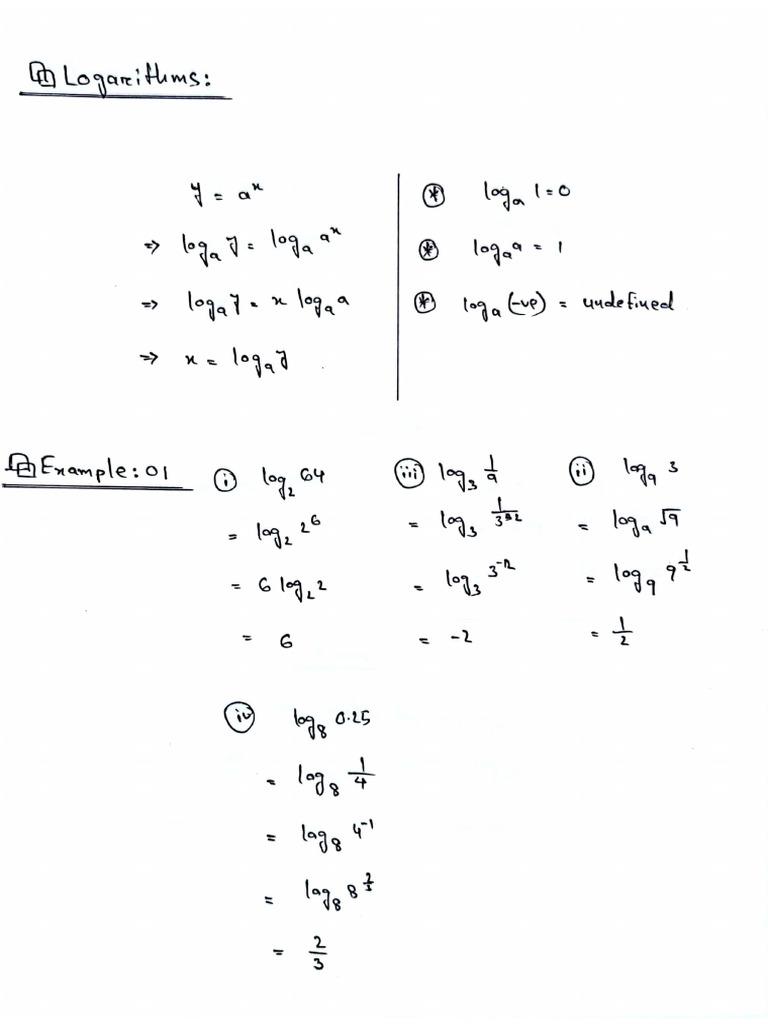 Logarithms:
y = aˣ
⇒ logₐ y = logₐ aˣ
⇒ logₐ y = x logₐ a
⇒ x = logₐ y
⊛ logₐ 1 = 0
⊛ logₐ a = 1
⊛ logₐ (-ve) = undefined
Example: 01
(i) log₂ 64
= log₂ 2⁶
= 6 log₂ 2
= 6
(iii) log₃ 1/9
= log₃ 1/3²
= log₃ 3⁻²
= -2
(ii) log₉ 3
= log₉ √9
= log₉ 9^(1/2)
= 1/2
(iv) log₈ 0.25
= log₈ 1/4
= log₈ 4⁻¹
= log₈ 8^(2/3)
= 2/3